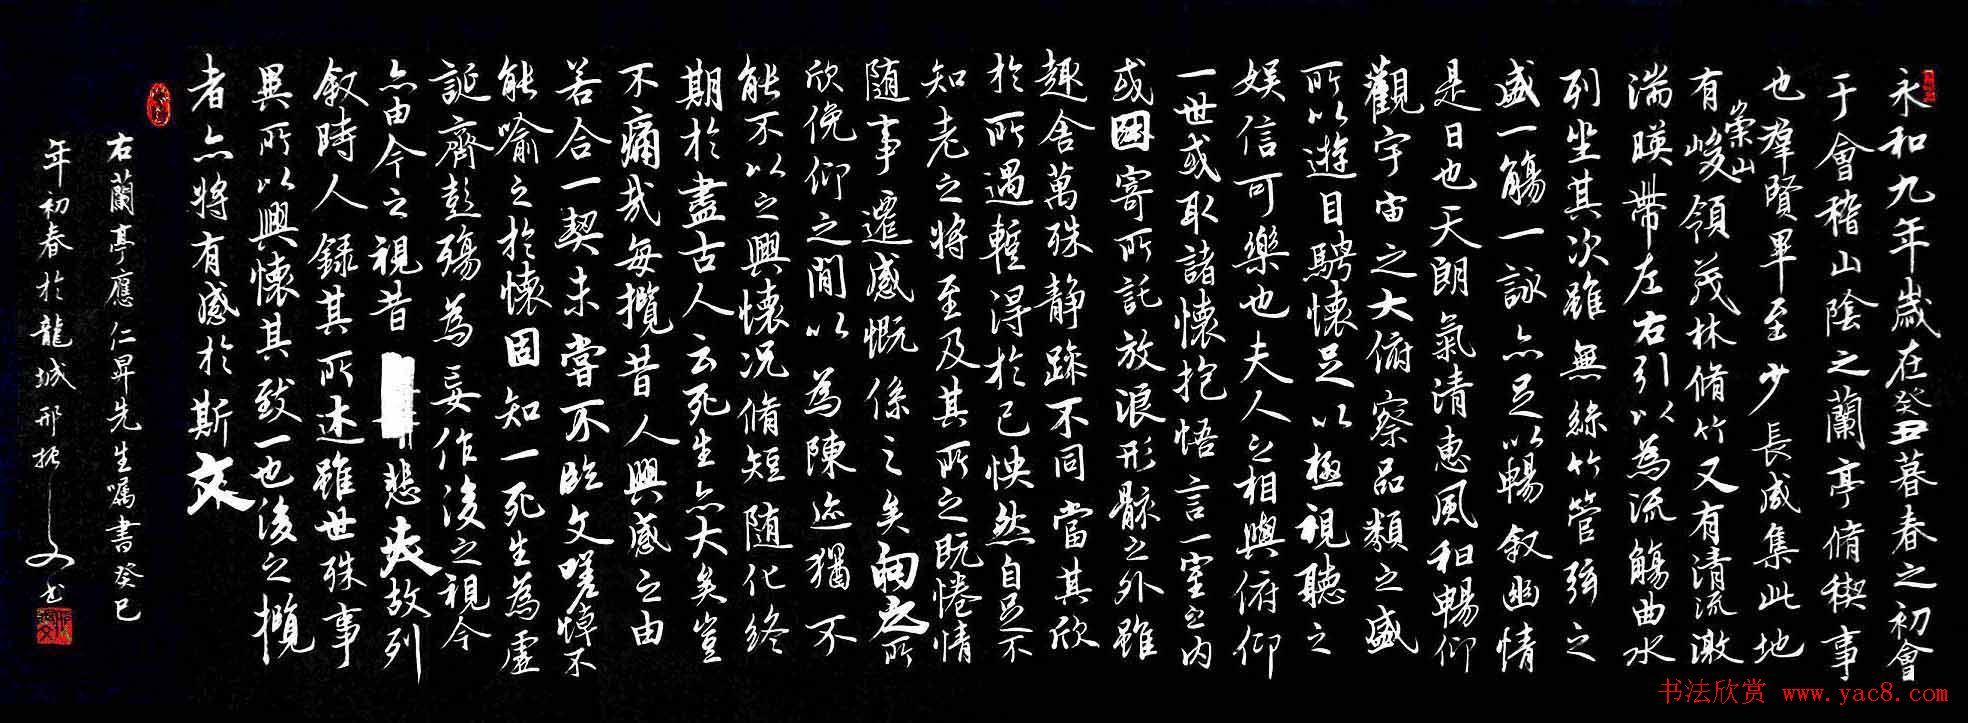 永和九年歲在癸丑暮春之初會
于會稽山陰之蘭亭脩稧事
也羣賢畢至少長咸集此地
有崇山峻領茂林脩竹又有清流激
湍暎帶左右引以為流觴曲水
列坐其次雖無絲竹管弦之
盛一觴一詠亦足以暢叙幽情
是日也天朗氣清惠風和暢仰
觀宇宙之大俯察品類之盛
所以遊目騁懷足以極視聽之
娱信可樂也夫人之相與俯仰
一世或取諸懷抱悟言一室之内
或因寄所託放浪形骸之外雖
趣舍萬殊静躁不同當其欣
於所遇蹔得於己怏然自足不
知老之將至及其所之既惓情
随事遷感慨係之矣向之所
欣俛仰之間以為陳迹猶不
能不以之興懷况脩短随化終
期於盡古人云死生亦大矣豈
不痛哉每攬昔人興感之由
若合一契未嘗不臨文嗟悼不
能喻之於懷固知一死生為虚
誕齊彭殤為妄作後之視今
亦由今之視昔悲夫故列
叙時人録其所述雖世殊事
異所以興懷其致一也後之攬
者亦將有感於斯文
右蘭亭應仁昇先生嘱書癸巳
年初春於龍城邢振
书法欣赏 www.yac8.com